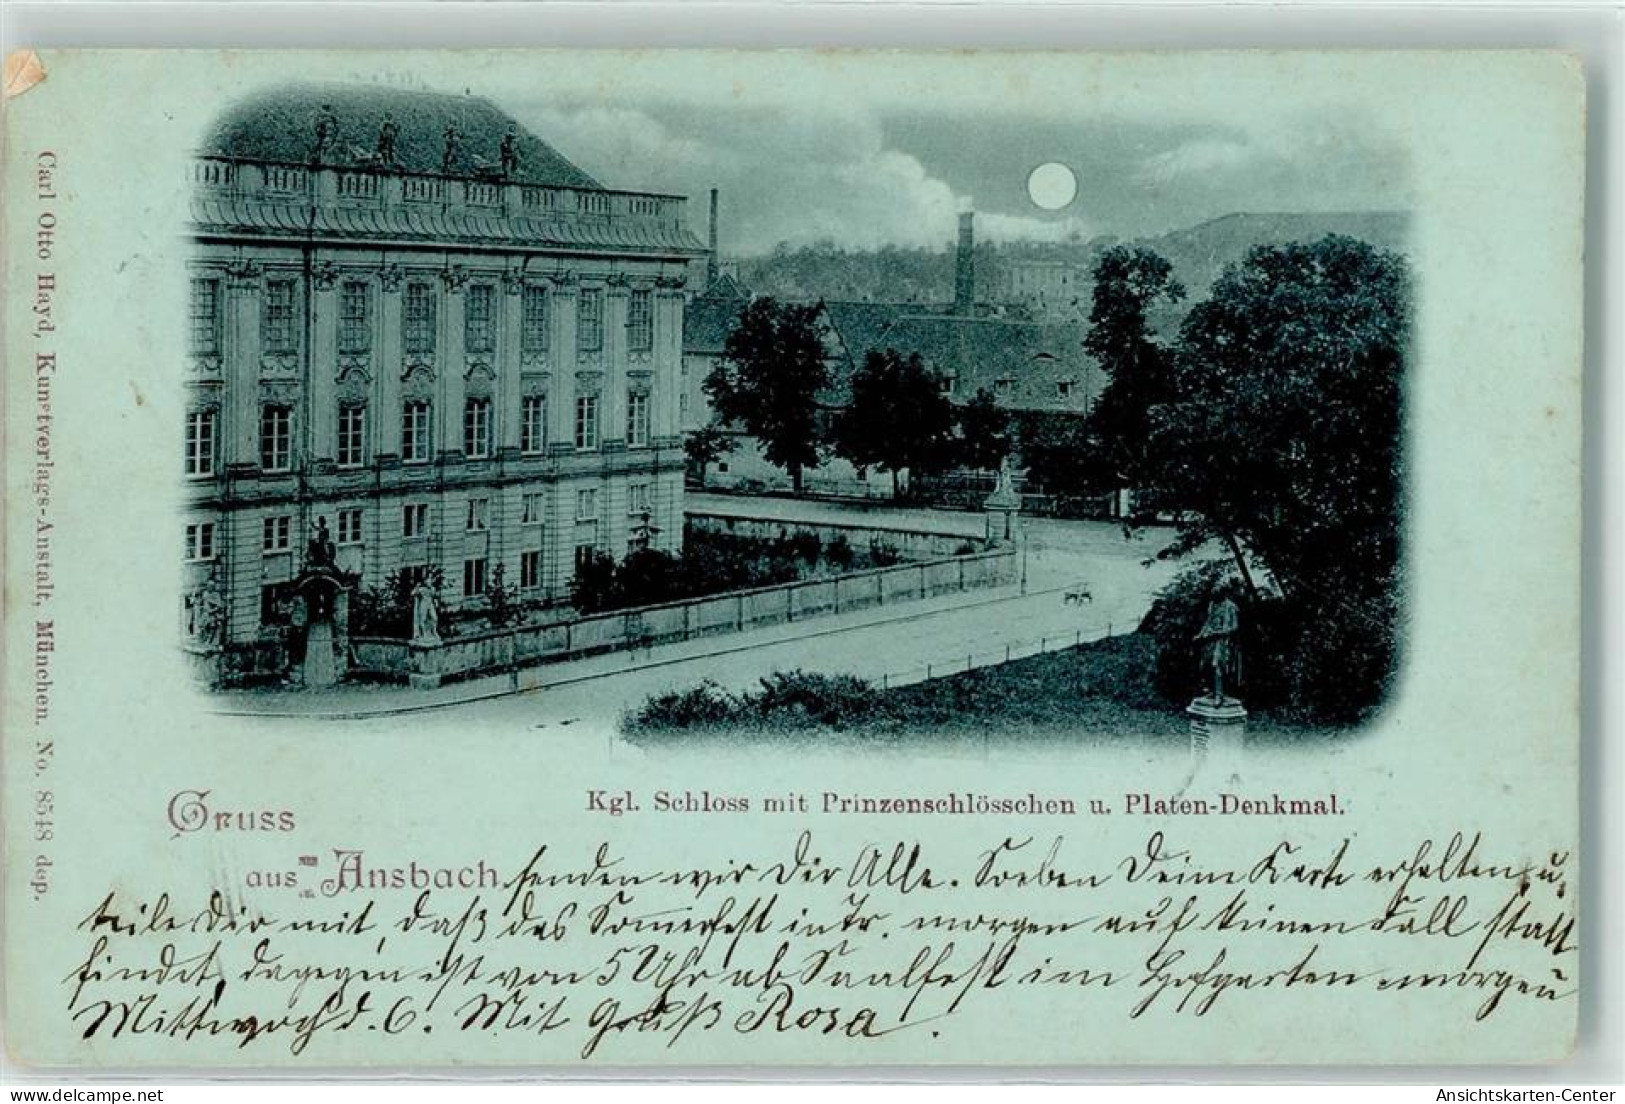 Carl Otto Hayd, Kunstverlags-Anstalt, München. No. 8548 dep.
Kgl. Schloss mit Prinzenschlösschen u. Platen-Denkmal.
Gruss
aus Ansbach senden wir Dir Alle. Soeben Deine Karte erhalten, u.
teile Dir mit, daß das Sommerfest in Tr. morgen auf keinen Fall statt
findet, dagegen ist von 5 Uhr ab Saalfest im Hofgarten morgen
Mittwoch d. 6. Mit Gruß Rosa.
www.delcampe.net
Ansichtskarten-Center